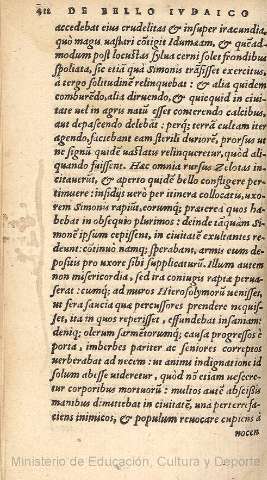 412 DE BELLO IVDAICO
accedebat eius crudelitas & insuper iracundia,
quò magis vastari cōtigit Idumæam, & quēad-
modum post locustas sylua cerni solet frondibus
spoliata, sic etiā quà Simonis trāsisset exercitus,
à tergo solitudinē relinquebat: & alia quidem
comburēdo, alia diruendo, & quicquid in ciui-
tate uel in agris natū esset conterendo calcibus,
aut depascendo delebat: perq; terrā cultam iter
agendo, faciebant eam sterili duriorē, prorsus ut
ne signū quidē uastatis relinqueretur, quòd ali-
quando fuissent. Hæc omnia rursus Zelotas in-
citauerūt, & aperto quidē bello confligere per-
timuere: insidijs uerò per itinera collocatis, uxo-
rem Simonis rapiūt, eorumq; præterea quos ha-
bebat in obsequio plurimos: deinde tāquàm Si-
monē ipsum cepissent, in ciuitatē exultantes re-
deunt: cōtinuò namq; sperabant, armis eum de-
positis pro uxore sibi supplicaturū. Illum autem
non misericordia, sed ira coniugis rapta perua-
serat: cumq; ad muros Hierosolymorū uenisset,
ut fera saucia quæ percussores prendere nequis-
set, ita in quos reperisset, effundebat insaniam:
deniq; olerum sarmētorumq; causa progressos è
porta, imberbes pariter ac seniores correptos
uerberabat ad necem: ut animi indignationē id
solum abesse uideretur, quòd nō etiam uescere-
tur corporibus mortuorū: multos autē abscissis
manibus dimittebat in ciuitatē, unà perterrefa-
ciens inimicos, & populum reuocare cupiens à
nocen
Ministerio de Educación, Cultura y Deporte